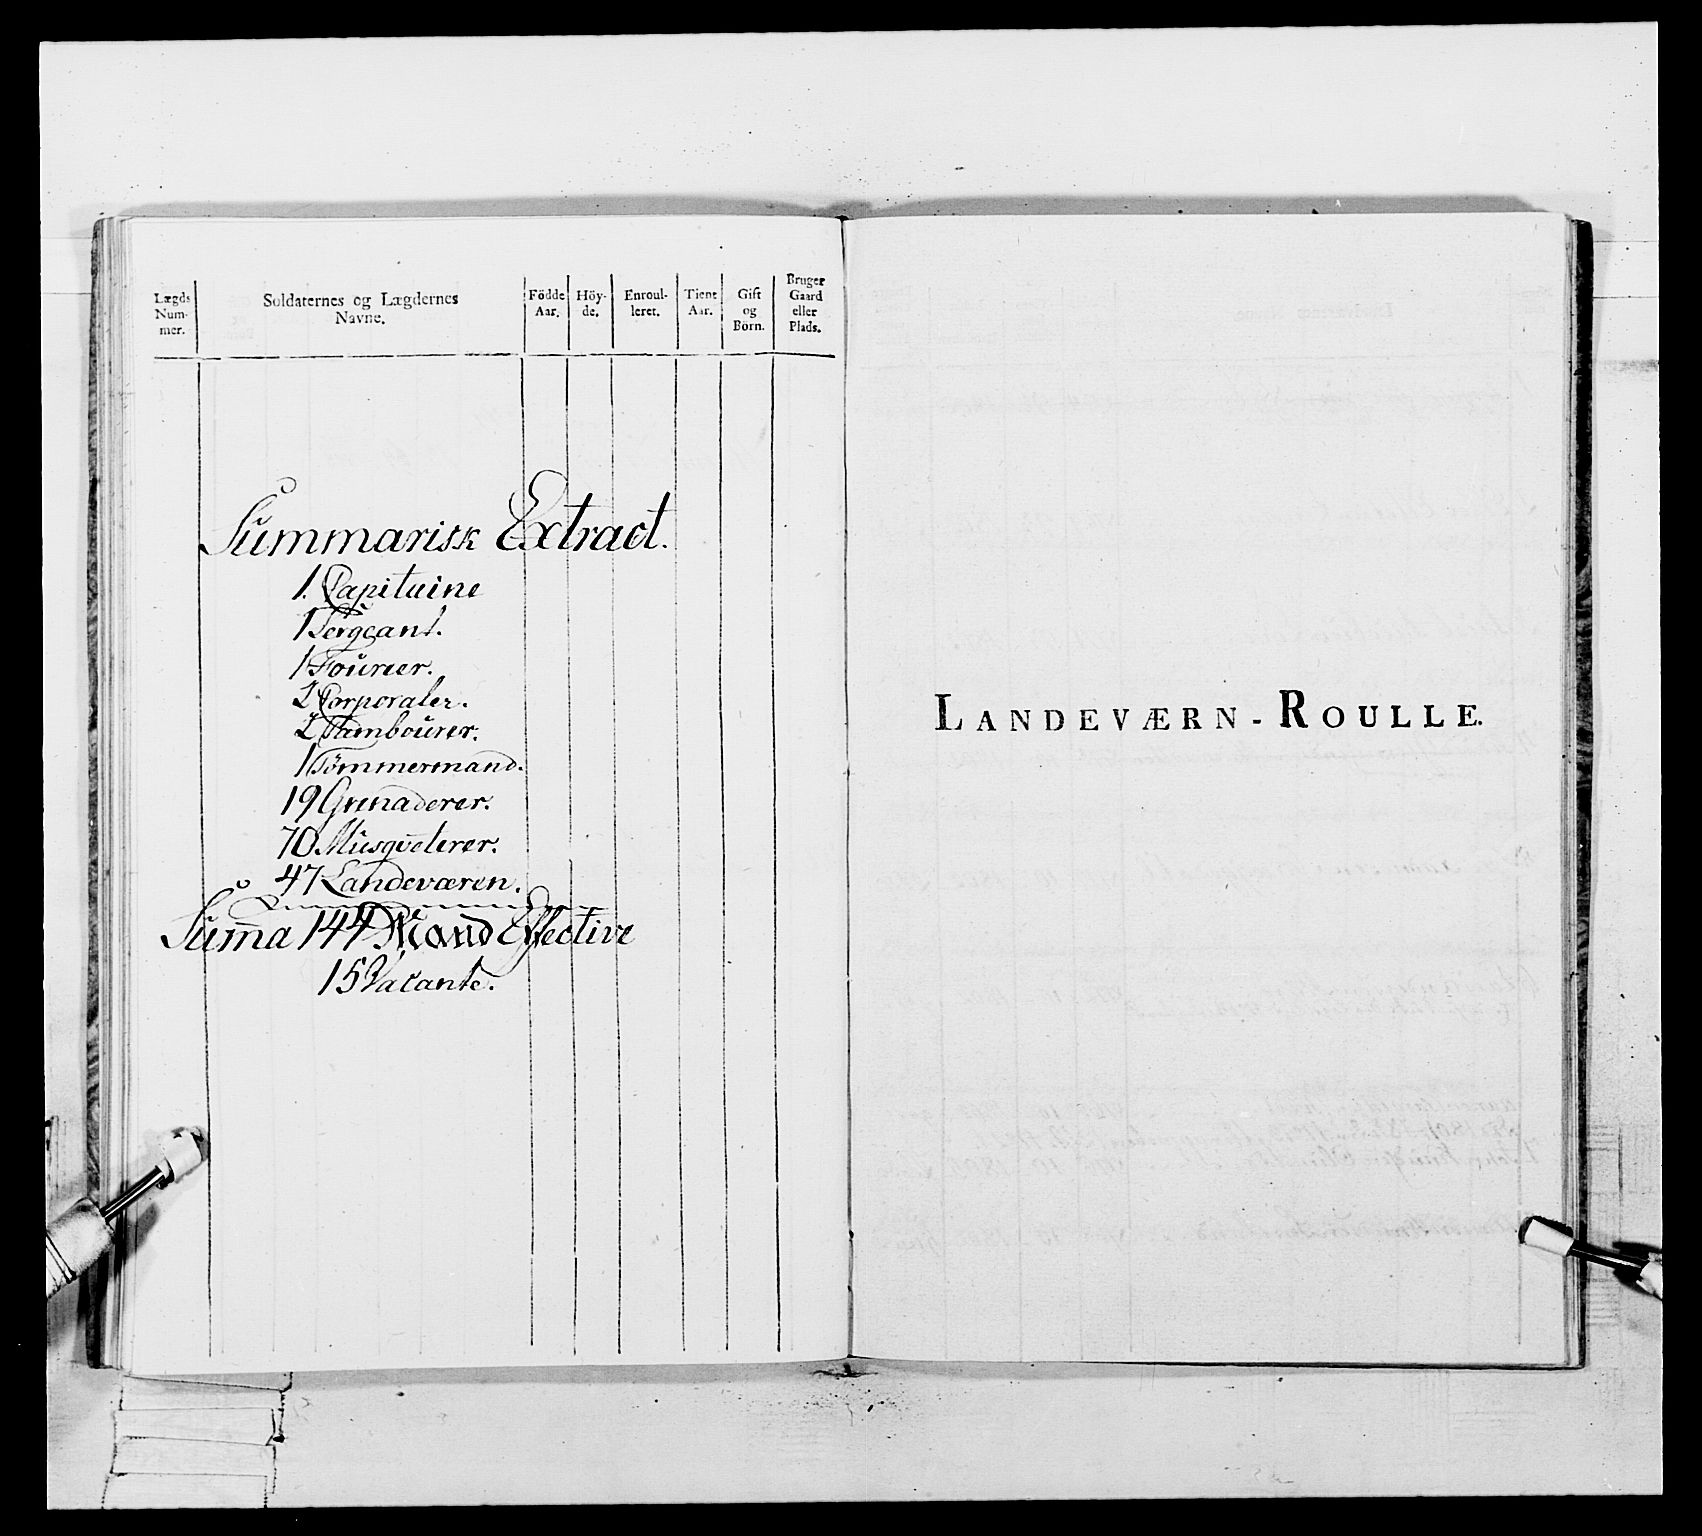 Lægds Num- mer.
Soldaternes og Lægdernes Navne.
Födde Aar.
Höy- de.
Enroul- leret.
Tiene Aar.
Gift og Börn.
Bruger Gaard eller Plads.
Summarisk Extract.
1. Capitaine
1 Sergeant.
1 Fourier.
2 Corporaler.
2 Tambourer.
1 Tömmermand.
19 Grenaderer.
70 Musqveterer.
47 Landeværen.
Suma 144 Mand Effective
15 Vacante.
LANDEVÆRN-ROULLE.